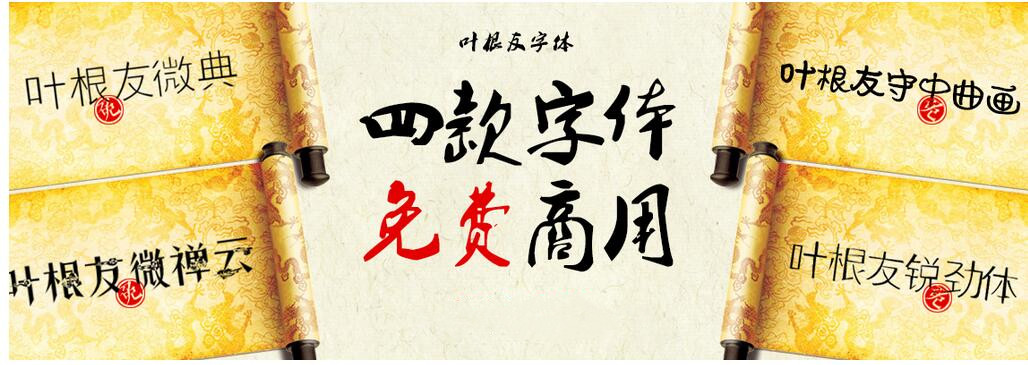 叶根友字体
四款字体
免费商用
叶根友微典
叶根友微禅云
叶根友守中曲画
叶根友锐劲体